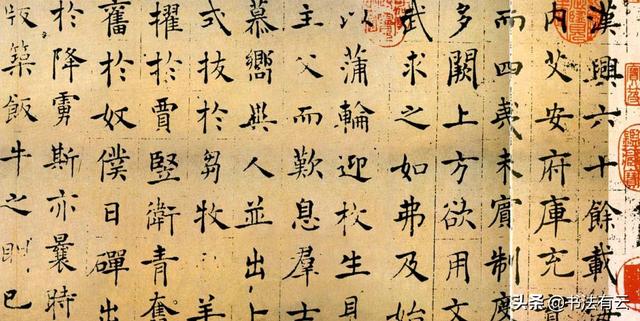 漢興六十餘載海
內艾安府庫充實
而四夷未賓制度
多闕上方欲用文
武求之如弗及始
以蒲輪迎枚生見
主父而歎息羣士
慕嚮異人並出卜
式拔於芻牧羊
擢於賈豎衛青奮
奮於奴僕日磾出
於降虜斯亦曩時
版築飯牛之朋已
头条 @书法有云